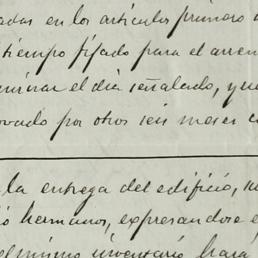 adas en los articulos primero
tiempo fijado para el arren
minar el dia señalado, y
ovado por otros seis meses
la entrega del edificio,
hermanos, expresandose
el mismo inventario hará